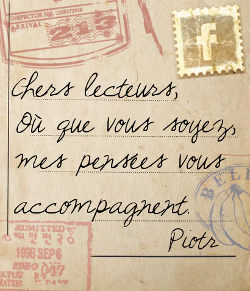 INSPECTOR NO. 
ARRIVAL
213
f
Chers lecteurs,
Où que vous soyez,
mes pensées vous
accompagnent.
Piotr
BELL
ADMITTED
1998 SEP 6
017
STATUS